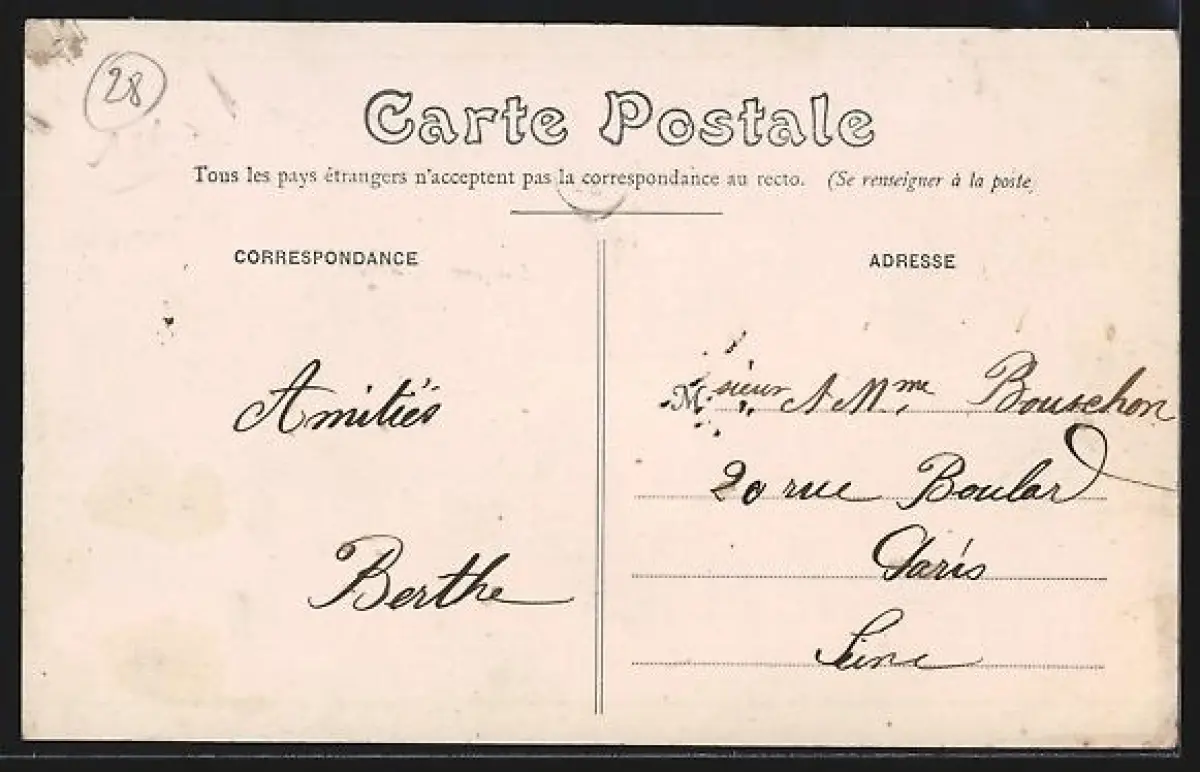 28
Carte Postale
Tous les pays étrangers n'acceptent pas la correspondance au recto. (Se renseigner à la poste
CORRESPONDANCE
Amitiés
Berthe
ADRESSE
Msieur & Mme Bouschon
20 rue Boulard
Paris
Seine